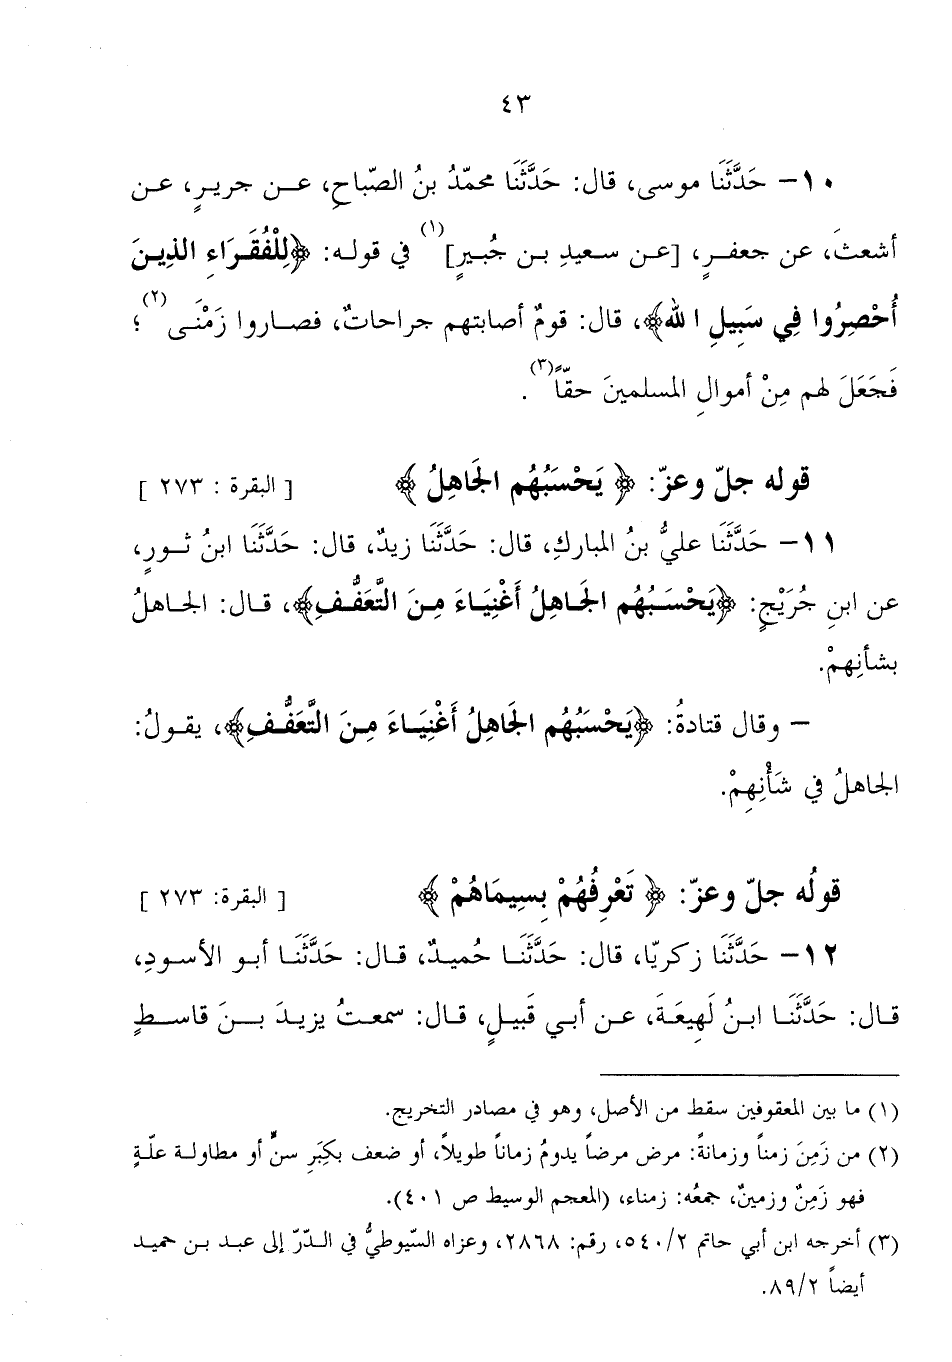 ٤٣
١٠− حَدَّثَنَا موسى، قال: حَدَّثَنَا محمّدُ بنُ الصّباحِ، عن جريرٍ، عن
أشعثَ، عن جعفرٍ، [عن سعيدِ بن جُبيرٍ](١) في قوله: ﴿لِلْفُقَرَاءِ الذِينَ
أُحْصِرُوا فِي سَبِيلِ الله﴾، قال: قومٌ أصابتهم جراحاتٌ، فصاروا زَمْنَى(٢)؛
فَجَعَلَ لهم مِنْ أموالِ المسلمينَ حقّاً(٣).
قوله جلّ وعزّ: ﴿ يَحْسَبُهُم الجَاهِلُ ﴾ [ البقرة : ٢٧٣ ]
١١− حَدَّثَنَا عليُّ بنُ المباركِ، قال: حَدَّثَنَا زيدٌ، قال: حَدَّثَنَا ابنُ ثورٍ،
عن ابنِ جُرَيْجٍ: ﴿يَحْسَبُهُم الجَاهِلُ أَغْنِيَاءَ مِنَ التَّعَفُّفِ﴾، قال: الجاهلُ
بشأنِهمْ.
− وقال قتادةُ: ﴿يَحْسَبُهُم الجَاهِلُ أَغْنِيَاءَ مِنَ التَّعَفُّفِ﴾، يقولُ:
الجاهلُ في شَأْنِهِمْ.
قولُه جلّ وعزّ: ﴿ تَعْرِفُهُمْ بِسِيمَاهُمْ ﴾ [ البقرة: ٢٧٣ ]
١٢− حَدَّثَنَا زكريّا، قال: حَدَّثَنَا حُميدٌ، قال: حَدَّثَنَا أبو الأسودِ،
قال: حَدَّثَنَا ابنُ لَهِيعَةَ، عن أبي قَبيلٍ، قال: سمعتُ يزيدَ بنَ قاسطٍ
(١) ما بين المعقوفين سقط من الأصل، وهو في مصادر التخريج.
(٢) من زَمِنَ زمناً وزمانةً: مرض مرضاً يدومُ زماناً طويلاً، أو ضعف بكِبَرِ سنٍّ أو مطاولة علّةٍ
فهو زَمِنٌ وزمينٌ، جمعُه: زمناء، (المعجم الوسيط ص ٤٠١).
(٣) أخرجه ابن أبي حاتم ٥٤٠/٢، رقم: ٢٨٦٨، وعزاه السّيوطيُّ في الدّرّ إلى عبد بن حميد
أيضاً ٨٩/٢.